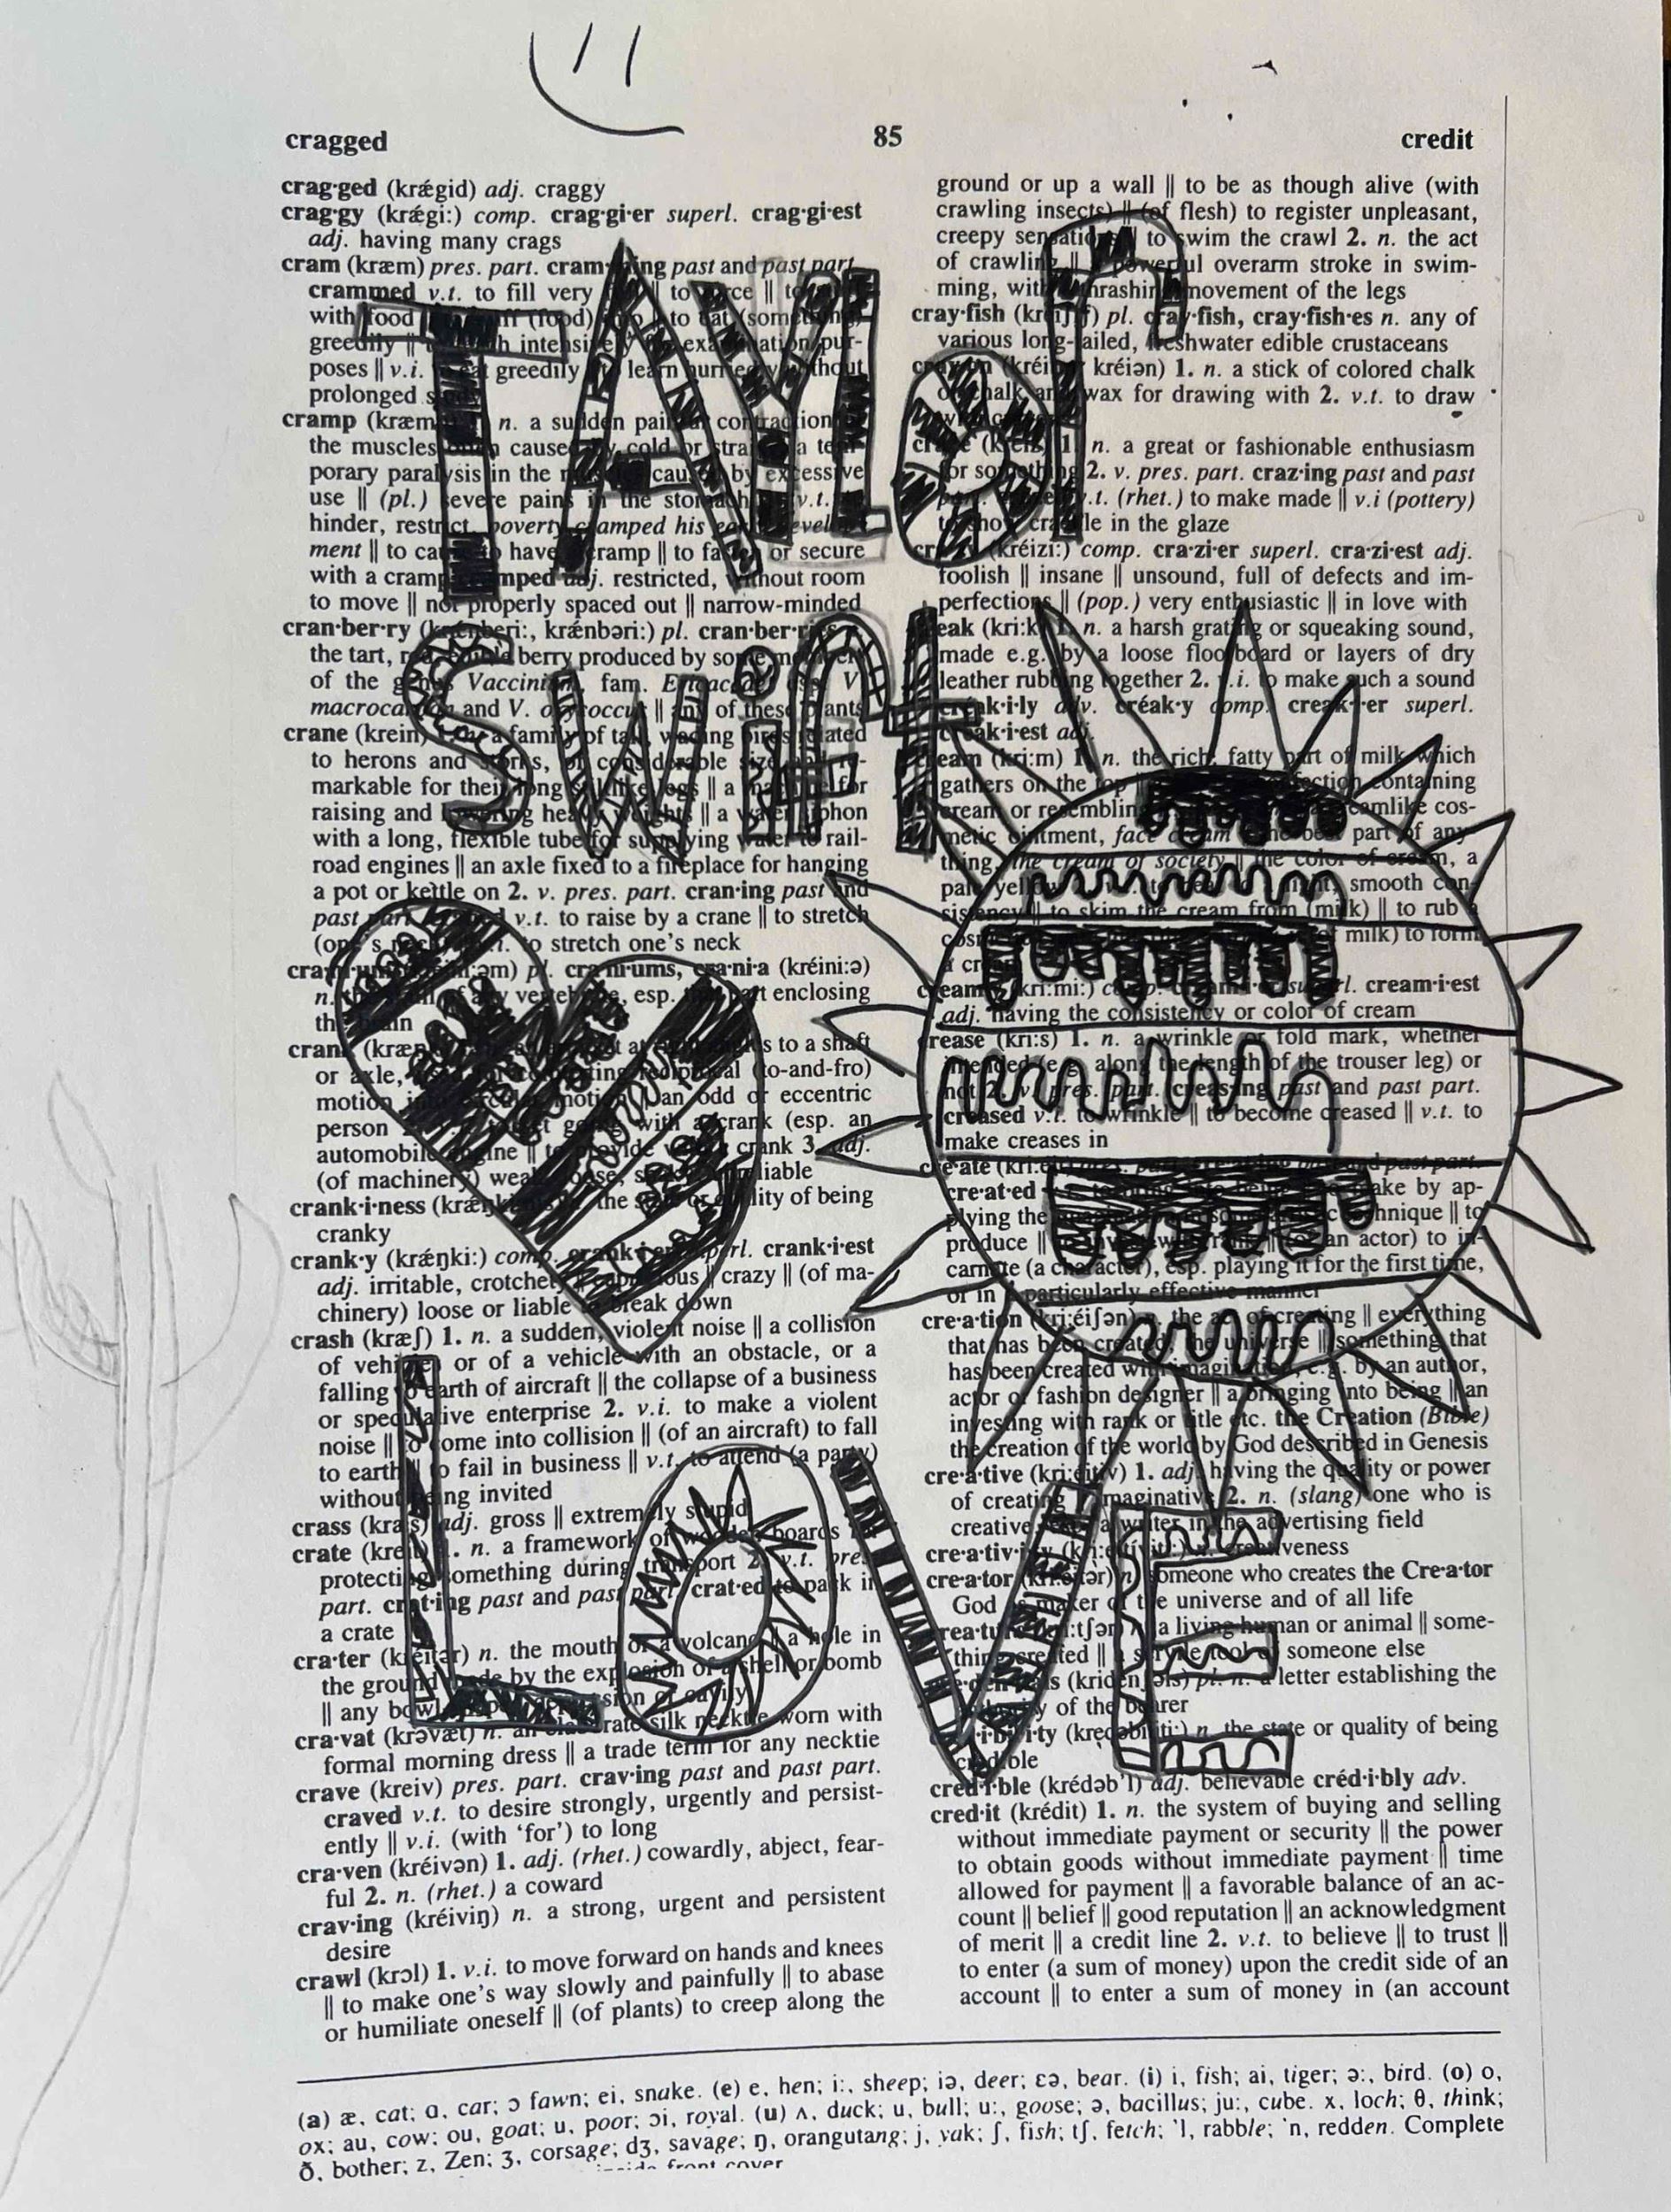 cragged 85 credit
crag·ged (krǽgid) adj. craggy
crag·gy (krǽgi:) comp. crag·gi·er superl. crag·gi·est
adj. having many crags
cram (kræm) pres. part. cram·ming past and past part.
crammed v.t. to fill very to force || to
with food (food) to eat (something)
greedily || intensively examination pur-
poses || v.i. to eat greedily || to learn hurriedly without
prolonged
cramp (kræm n. a sudden painful contraction
the muscles often caused by cold or strain a tem-
porary paralysis in the caused by excessive
use || (pl.) severe pains in the stomach v.t.
hinder, restrict, poverty cramped his early develop-
ment || to cause to have cramp || to fasten or secure
with a cramp cramped adj. restricted, without room
to move || not properly spaced out || narrow-minded
cran·ber·ry (krǽnberi:, krǽnbəri:) pl. cran·ber·ries n.
the tart, red, edible berry produced by some
of the genus Vaccinium, fam. Ericaceae V.
macrocarpon and V. oxycoccus || any of these plants
crane (krein) a family of tall, wading birds related
to herons and storks, of considerable size
markable for their long legs || a machine for
raising and lowering heavy weights || a water siphon
with a long, flexible tube for supplying water to rail-
road engines || an axle fixed to a fireplace for hanging
a pot or kettle on 2. v. pres. part. cran·ing past and
past part. craned v.t. to raise by a crane || to stretch
(one's neck) v.i. to stretch one's neck
cra·ni·um pl. cra·ni·ums, cra·ni·a (kréini:ə)
n. the of any vertebrate, esp. the part enclosing
the brain
crank (kræ at to a shaft
or axle, reciprocal (to-and-fro)
motion motion || an odd or eccentric
person with a crank (esp. an
automobile engine || to provide with a crank 3. adj.
(of machinery) weak, loose, unreliable
crank·i·ness the state or quality of being
cranky
crank·y (krǽŋki:) comp. crank·i·er superl. crank·i·est
adj. irritable, crotchety || capricious || crazy || (of ma-
chinery) loose or liable to break down
crash (kræʃ) 1. n. a sudden, violent noise || a collision
of vehicles or of a vehicle with an obstacle, or a
falling to earth of aircraft || the collapse of a business
or speculative enterprise 2. v.i. to make a violent
noise || to come into collision || (of an aircraft) to fall
to earth || to fail in business || v.t. to attend (a party)
without being invited
crass (kræs) adj. gross || extremely stupid
crate (kreit) 1. n. a framework of wooden boards for
protecting something during transport 2. v.t. pres.
part. crat·ing past and past part. crat·ed to pack in
a crate
cra·ter (kréitər) n. the mouth of a volcano || a hole in
the ground made by the explosion of a shell or bomb
|| any bowl-shaped depression or cavity
cra·vat (krəvæt) n. an elaborate silk necktie worn with
formal morning dress || a trade term for any necktie
crave (kreiv) pres. part. crav·ing past and past part.
craved v.t. to desire strongly, urgently and persist-
ently || v.i. (with ‘for’) to long
cra·ven (kréivən) 1. adj. (rhet.) cowardly, abject, fear-
ful 2. n. (rhet.) a coward
crav·ing (kréiviŋ) n. a strong, urgent and persistent
desire
crawl (krɔl) 1. v.i. to move forward on hands and knees
|| to make one's way slowly and painfully || to abase
or humiliate oneself || (of plants) to creep along the
ground or up a wall || to be as though alive (with
crawling insects) || (of flesh) to register unpleasant,
creepy sensations || to swim the crawl 2. n. the act
of crawling || a powerful overarm stroke in swim-
ming, with thrashing movement of the legs
cray·fish (kréiʃif) pl. cray·fish, cray·fish·es n. any of
various long-tailed, freshwater edible crustaceans
cray·on (kréion, kréiən) 1. n. a stick of colored chalk
or chalk and wax for drawing with 2. v.t. to draw
with crayons
craze (kreiz) 1. n. a great or fashionable enthusiasm
for something 2. v. pres. part. craz·ing past and past
part. crazed v.t. (rhet.) to make made || v.i (pottery)
to show crackle in the glaze
cra·zy (kréizi:) comp. cra·zi·er superl. cra·zi·est adj.
foolish || insane || unsound, full of defects and im-
perfections || (pop.) very enthusiastic || in love with
creak (kri:k) 1. n. a harsh grating or squeaking sound,
made e.g. by a loose floorboard or layers of dry
leather rubbing together 2. v.i. to make such a sound
creak·i·ly adv. créak·y comp. creak·i·er superl.
creak·i·est adj.
cream (kri:m) 1. n. the rich, fatty part of milk which
gathers on the top || confection containing
cream or resembling creamlike cos-
metic ointment, face cream || the best part of any-
thing, the cream of society || the color of cream, a
pale yellow light, smooth con-
sistency || to skim the cream from (milk) || to rub a
cosmetic milk) to form
a cream
cream·y (kri:mi:) comp. cream·i·er superl. cream·i·est
adj. having the consistency or color of cream
crease (kri:s) 1. n. a wrinkle or fold mark, whether
intended (e.g. along the length of the trouser leg) or
not 2. v. pres. part. creasing past and past part.
creased v.t. to wrinkle || to become creased || v.t. to
make creases in
cre·ate (kri:éit) pres. part. cre·at·ing past and past part.
cre·at·ed v.t. to bring into being || to make by ap-
plying the technique || to
produce || an actor) to in-
carnate (a character), esp. playing it for the first time,
or in a particularly effective manner
cre·a·tion (kri:éiʃən) n. the act of creating || everything
that has been created, the universe || something that
has been created with imagination, e.g. by an author,
actor or fashion designer || a bringing into being || an
investing with rank or title etc. the Creation (Bible)
the creation of the world by God described in Genesis
cre·a·tive (kri:éitiv) 1. adj. having the quality or power
of creating || imaginative 2. n. (slang) one who is
creative, esp. a writer in the advertising field
cre·a·tiv·i·ty (kri:eitíviti:) n. creativeness
cre·a·tor (kri:éitər) n. someone who creates the Cre·a·tor
God as maker of the universe and of all life
crea·ture (kri:tʃər) n. a living human or animal || some-
thing created || a servile tool of someone else
cre·den·tials (kridenʃəls) pl. n. a letter establishing the
authority of the bearer
cred·i·bil·i·ty (kredəbíliti:) n. the state or quality of being
credible
cred·i·ble (krédəb'l) adj. believable créd·i·bly adv.
cred·it (krédit) 1. n. the system of buying and selling
without immediate payment or security || the power
to obtain goods without immediate payment || time
allowed for payment || a favorable balance of an ac-
count || belief || good reputation || an acknowledgment
of merit || a credit line 2. v.t. to believe || to trust ||
to enter (a sum of money) upon the credit side of an
account || to enter a sum of money in (an account
TAYLOR
SWIFT
LOVE
(a) æ, cat; ɑ, car; ɔ fawn; ei, snake. (e) e, hen; i:, sheep; iə, deer; ɛə, bear. (i) i, fish; ai, tiger; ə:, bird. (o) o,
ox; au, cow; ou, goat; u, poor; ɔi, royal. (u) ʌ, duck; u, bull; u:, goose; ə, bacillus; ju:, cube. x, loch; θ, think;
ð, bother; z, Zen; ʒ, corsage; dʒ, savage; ŋ, orangutang; j, yak; ʃ, fish; tʃ, fetch; 'l, rabble; 'n, redden. Complete
inside front cover